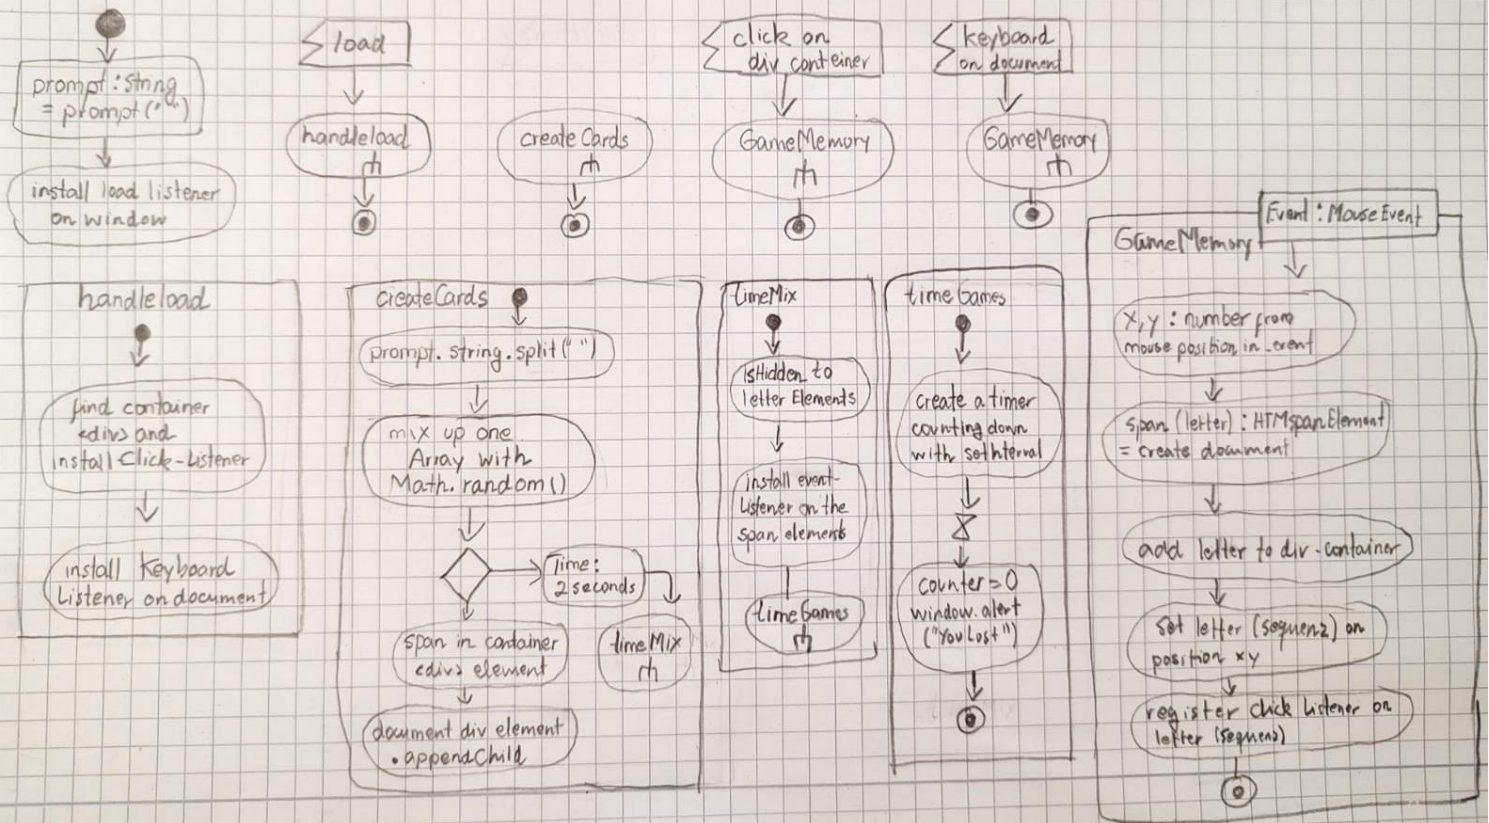 prompt : String
= prompt(" ")
install load listener
on window
load
handleload
createCards
click on
div conteiner
GameMemory
keyboard
on document
GameMemory
handleload
find container
<div> and
install Click-Listener
install Keyboard
Listener on document
createCards
prompt. string.split(" ")
mix up one
Array with
Math.random()
Time:
2 seconds
span in container
<div> element
timeMix
document div element
.appendChild
timeMix
isHidden to
letter Elements
install event-
Listener on the
span elements
timeGames
timeGames
create a timer
counting down
with setInterval
counter = 0
window.alert
("You Lost")
Event : MouseEvent
GameMemory
x, y : number from
mouse position in _event
span (letter) : HTMspanElement
= create document
add letter to div-container
set letter (sequenz) on
position xy
register click listener on
letter (sequenz)